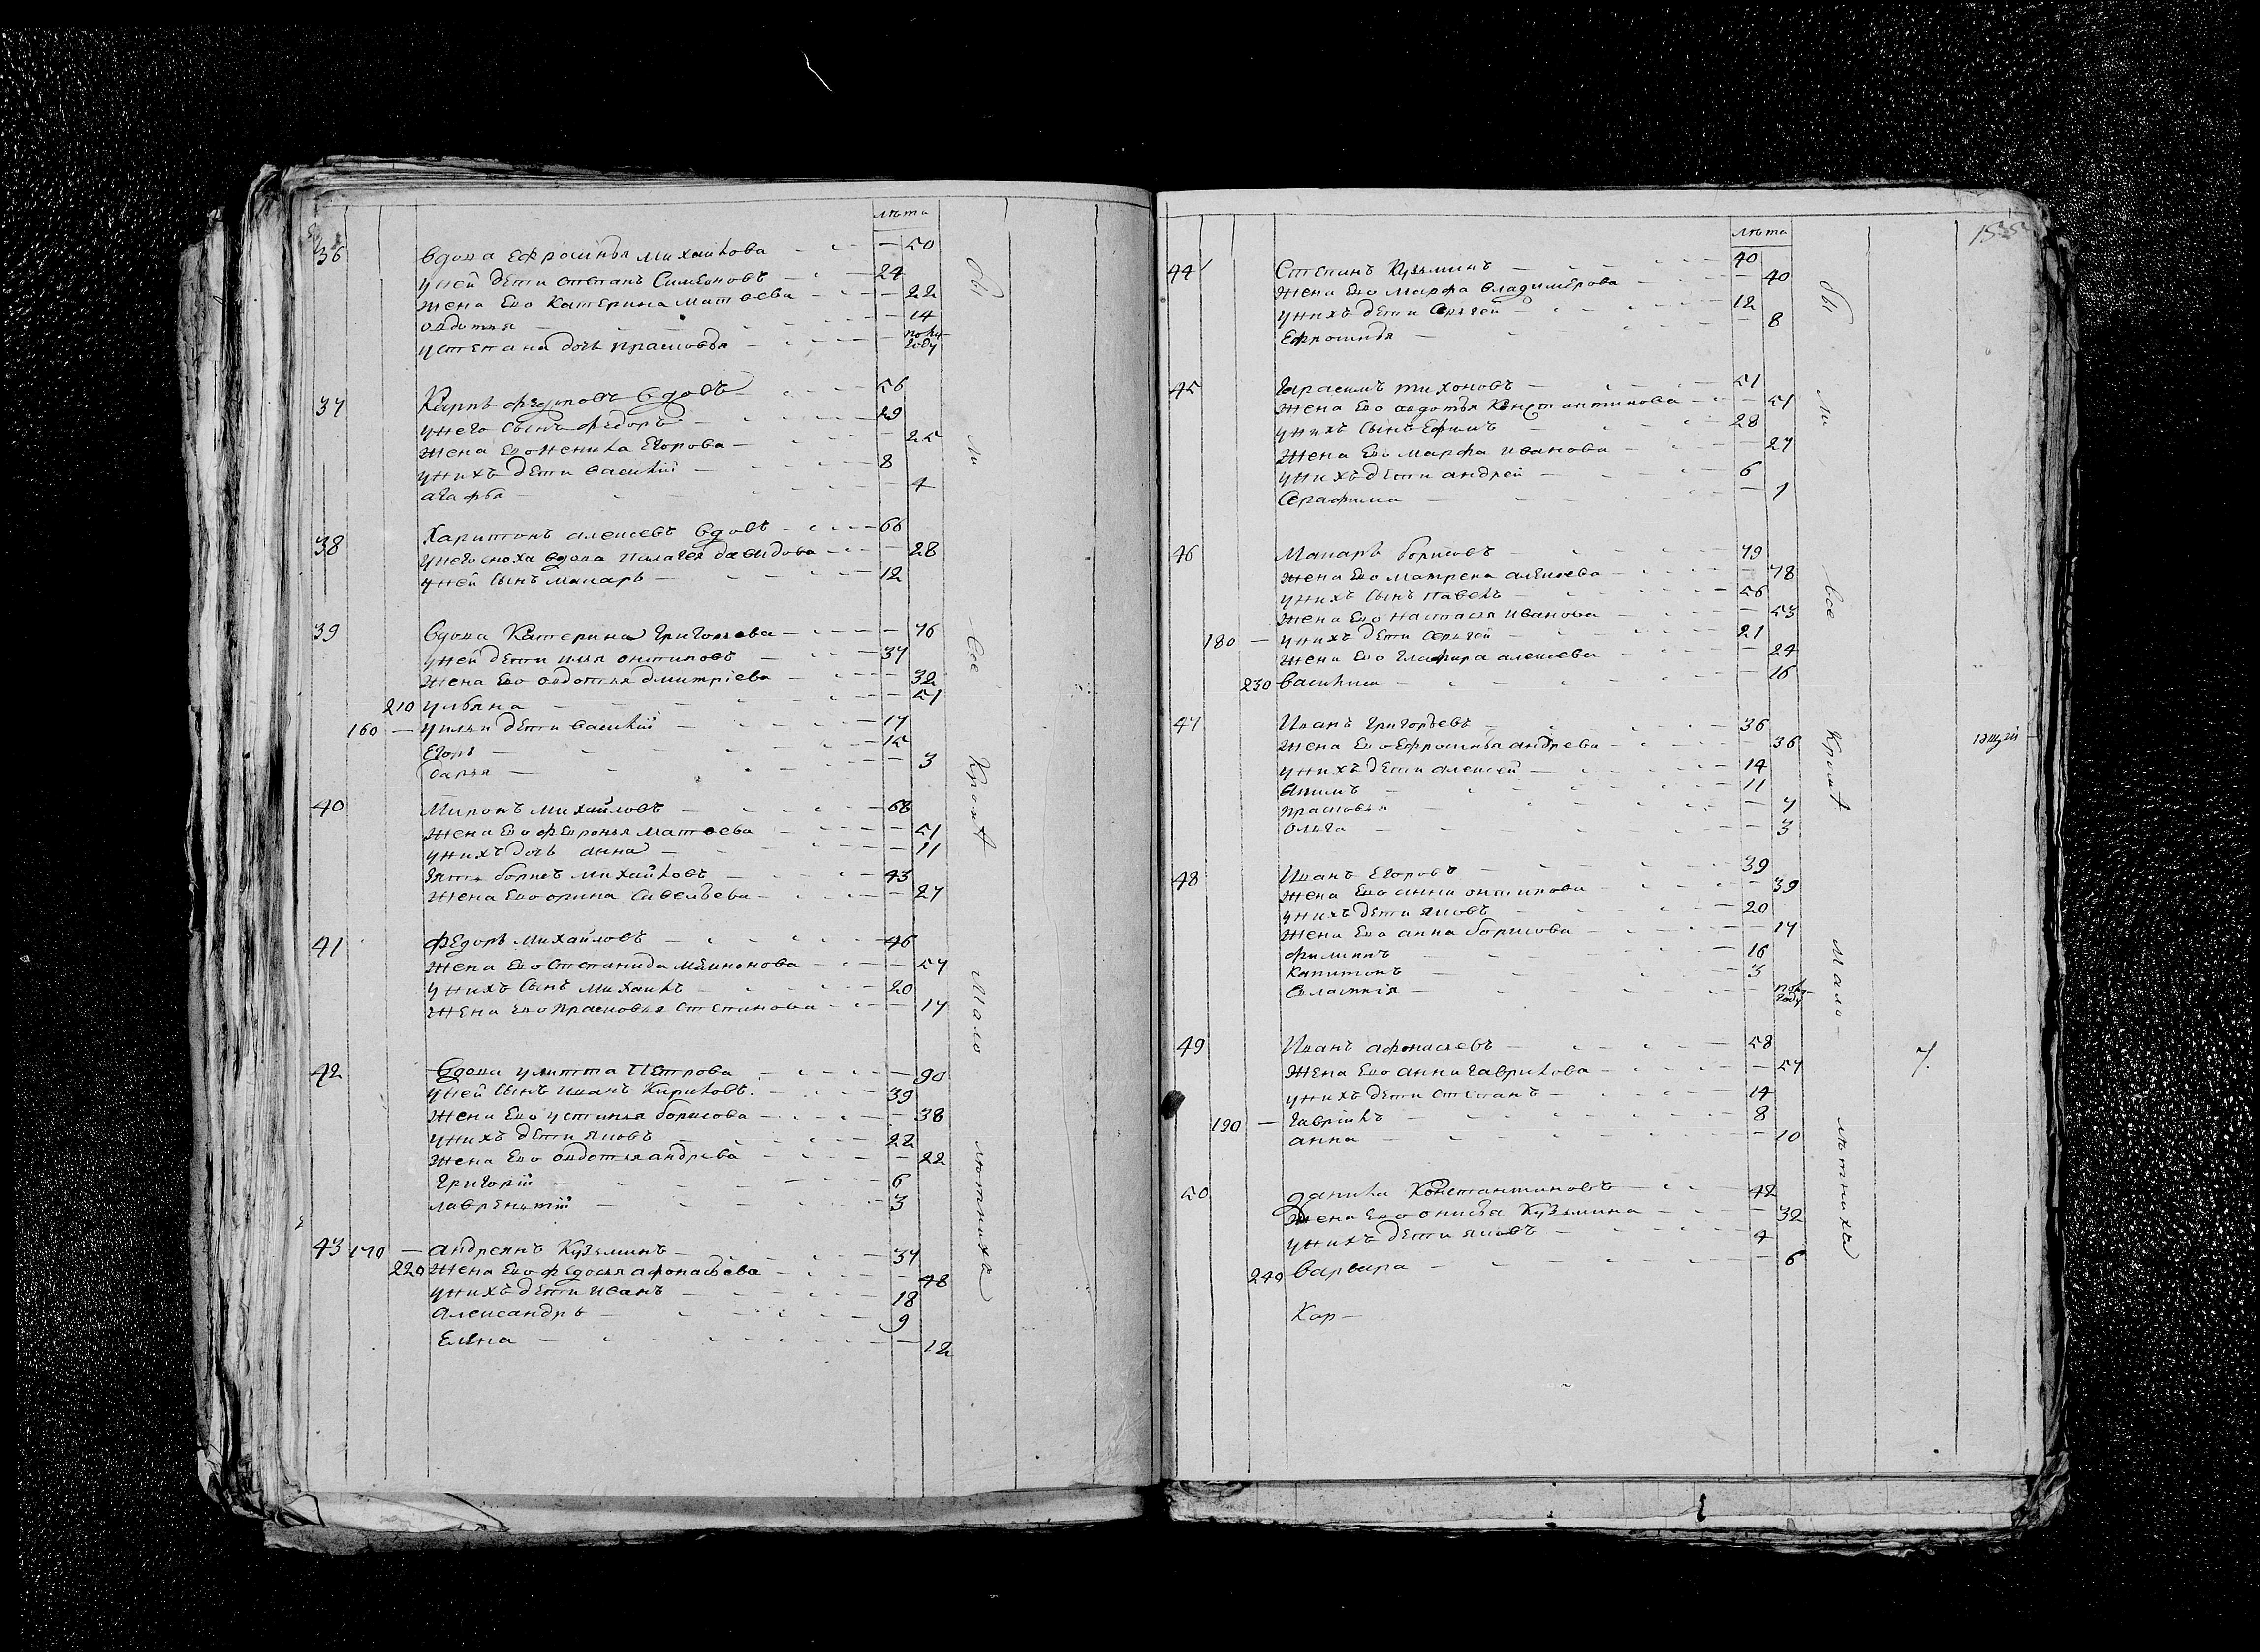 лѣта
36 вдова Ефросинья Михайлова — 50
у ней дети Степанъ Симеоновъ — 24
жена ево Катерина Матвѣева — 22
овдотья — 14
у степана дочь прасковья — полу году
37 Карпъ Федоровъ вдовъ — 56
у него сынъ федоръ — 29
жена ево Егорова — 25
у нихъ дети василий — 8
агафья — 4
38 Харитонъ алексѣевъ вдовъ — 66
у него сноха вдова Палагея давыдова — 28
у ней сынъ макаръ — 12
39 вдова Катерина Григорьева — 76
у ней дети илья онтиповъ — 37
жена ево овдотья дмитріева — 32
210 ульяна — 51
160 — у ильи дети василий — 17
Егоръ — 15
дарья — 3
40 Миронъ михайловъ — 68
жена ево февронья матвѣева — 51
у нихъ дочь анна — 11
зять борисъ михайловъ — 43
жена ево орина савельева — 27
41 федоръ михайловъ — 46
жена ево Степанида — 57
у нихъ сынъ михаилъ — 20
жена ево прасковья степанова — 17
42 вдова улитта Петрова — 90
у ней сынъ иванъ Кириловъ — 39
жена ево устинья борисова — 38
у нихъ дети яковъ — 22
жена ево овдотья андреева — 22
григорій — 6
лаврентий — 3
43 170 — андреянъ Кузьминъ — 37
220 жена ево федосья афонасьева — 48
у нихъ дети иванъ — 18
александръ — 9
Елена — 12
бы
ли
все
Кромѣ
мало
лѣтнихъ
лѣта
44 Степанъ Кузьминъ — 40
жена ево марфа владимерова — 40
у нихъ дети Сергей — 12
Ефросинья — 8
45 Герасимъ тихоновъ — 51
жена ево авдотья Константинова — 51
у нихъ сынъ Ефимъ — 28
жена ево марфа иванова — 27
у нихъ дети андрей — 6
Серафима — 1
46 Макаръ борисовъ — 79
жена ево матрена алексѣева — 78
у нихъ сынъ павелъ — 56
жена ево настасья иванова — 53
180 — у нихъ дети сергей — 21
жена ево глафира алексеева — 24
230 василиса — 16
47 Иванъ Григорьевъ — 36
жена ево Ефросинья андреева — 36
у нихъ дети алексей — 14
акимъ — 11
прасковья — 7
ольга — 3
48 Иванъ Егоровъ — 39
жена ево анна онтипова — 39
у нихъ дети яковъ — 20
жена ево анна борисова — 17
филиппъ — 16
Капитонъ — 3
— полу году
49 Иванъ афонасьевъ — 58
жена ево анна гаврилова — 57
у нихъ дети степанъ — 14
190 — гаврилъ — 8
анна — 10
50 данила Константиновъ — 42
жена ево онисья Кузьмина — 32
у нихъ дети яковъ — 4
240 варвара — 6
Кар—
бы
ли
все
Кромѣ
мало
лѣтнихъ